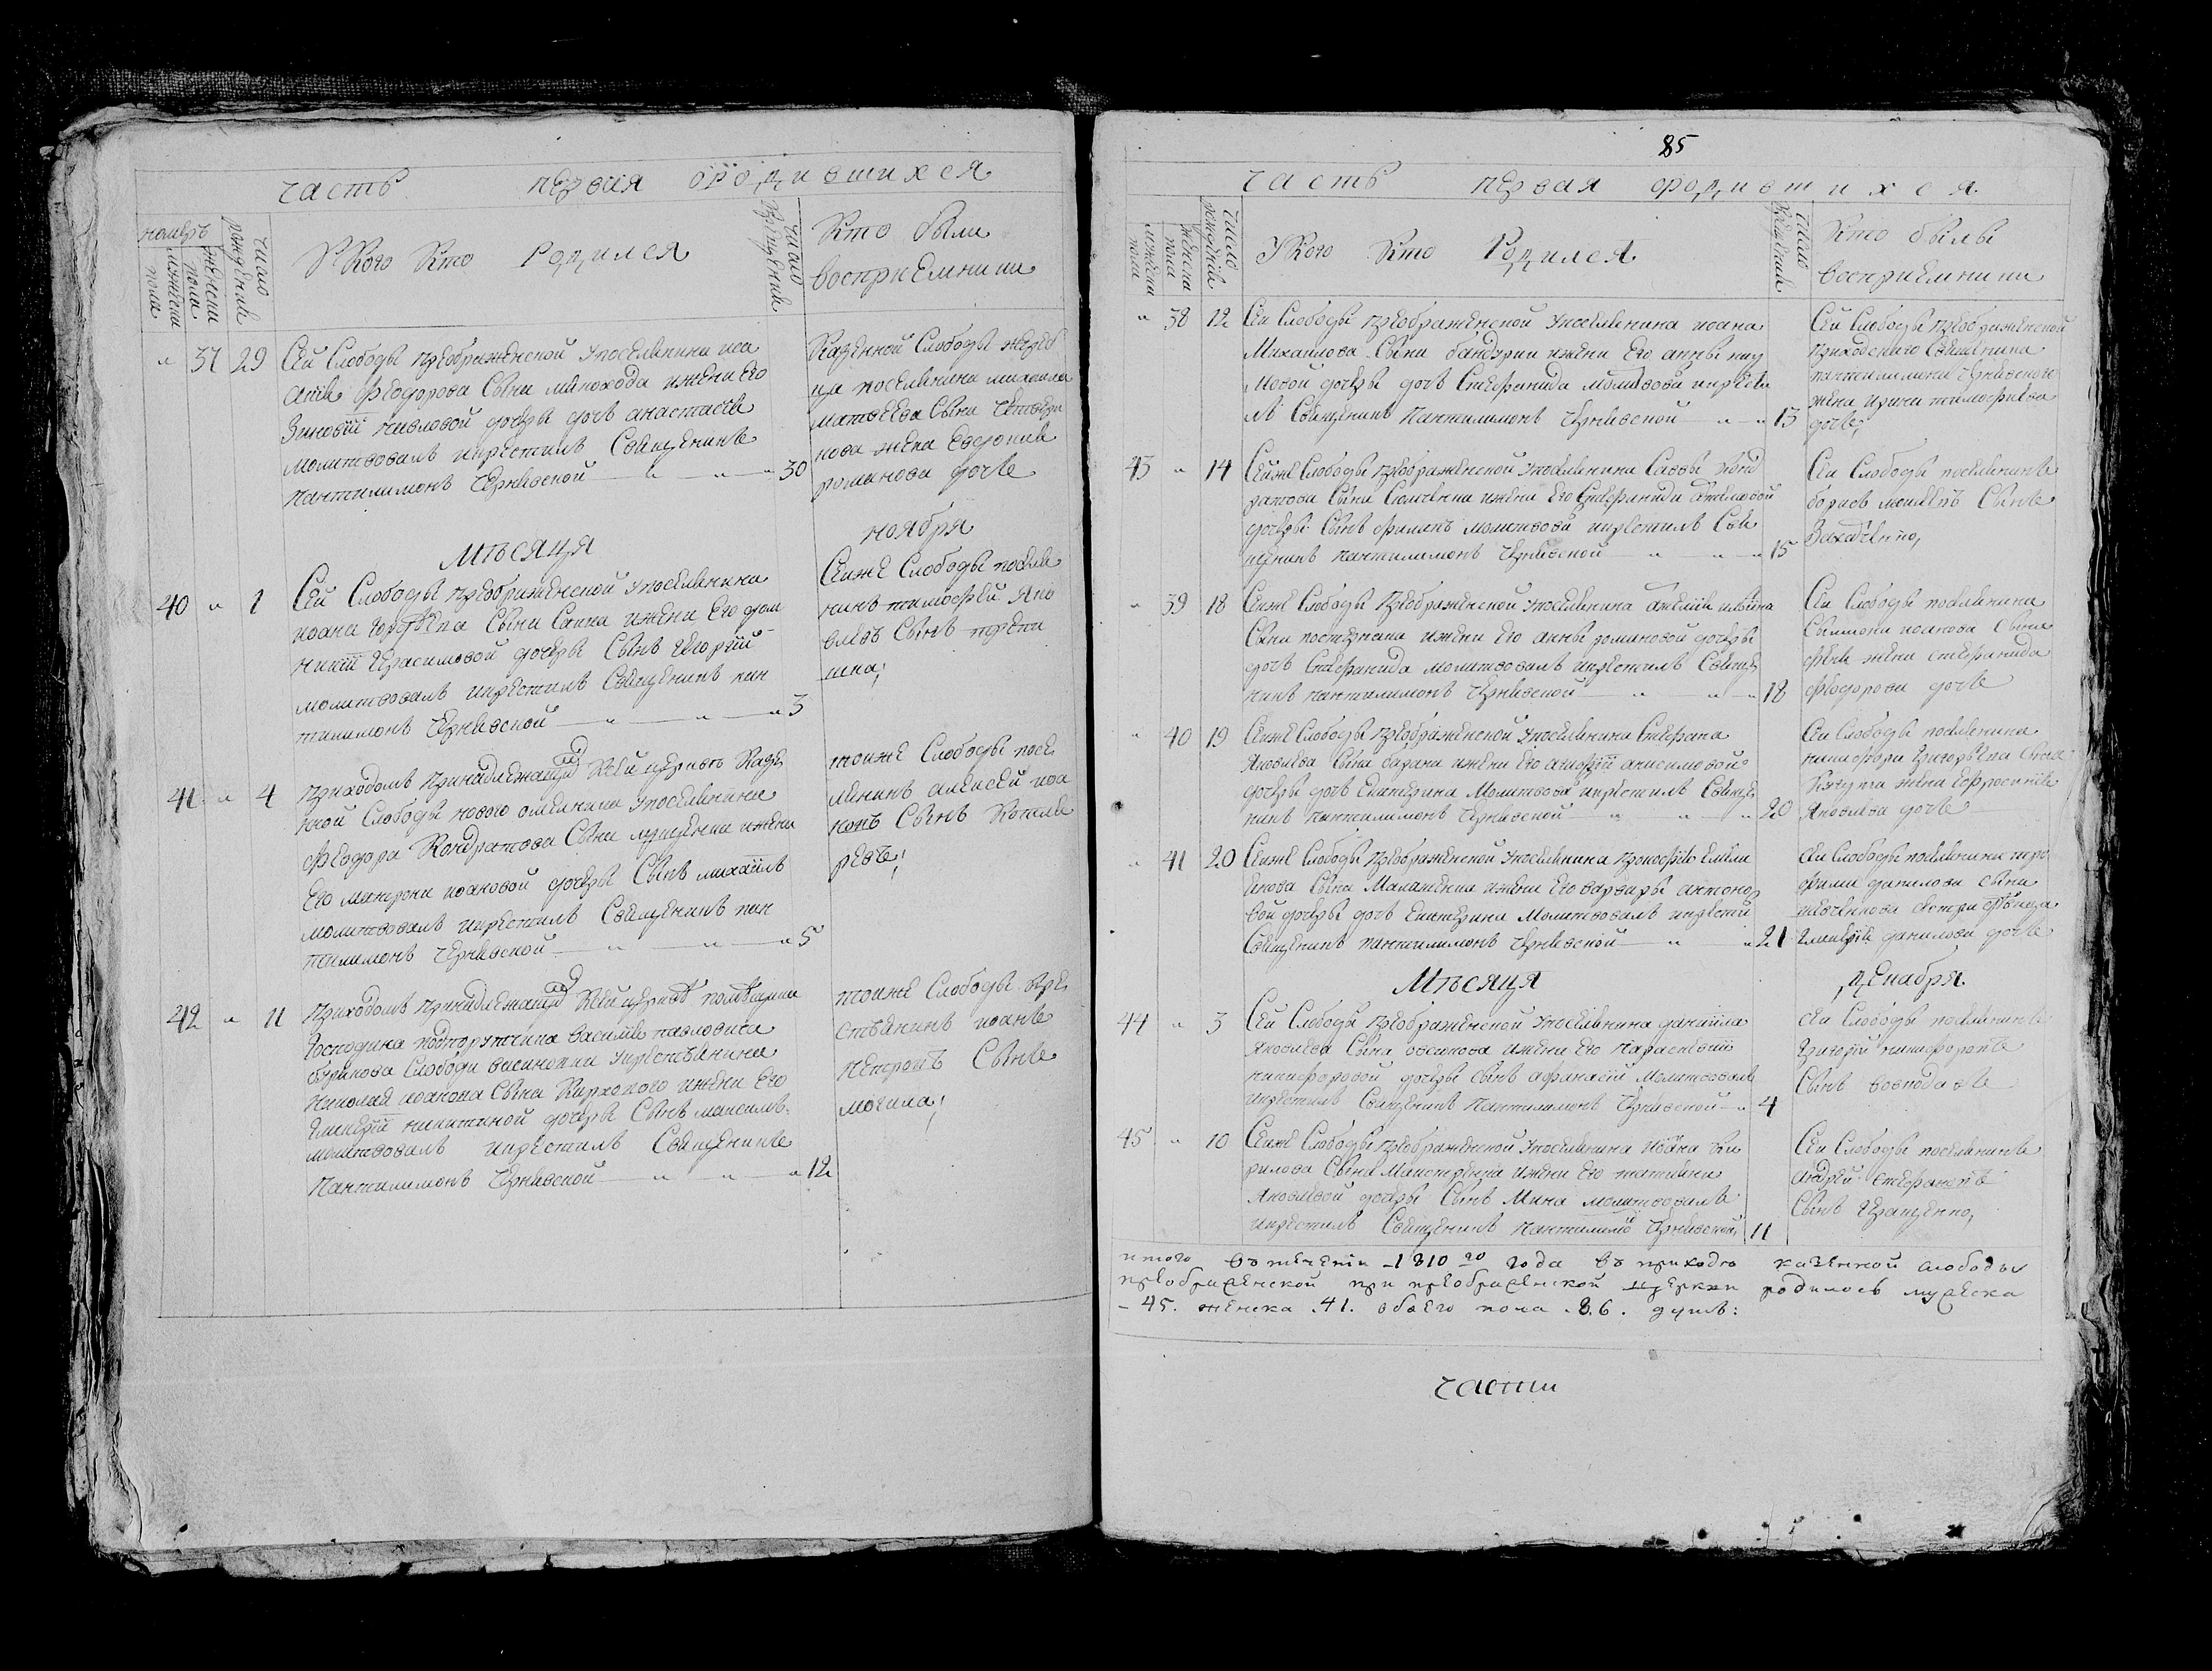 часть первая ородившихся
номеръ
мужеска пола
женска пола
число рожденія
У Кого Кто Родился
число крещенія
Кто были
восприемники
„ 37 29 Сей Слободы преображенской упоселянина иса
акія Феодорова Сына жены Его
Зиновіи Павловой дочери дочь анастасія
молитвовалъ икрестилъ Священникъ
Пантилимонъ Чернявской — „ — „ — „ 30
Казенной Слободы
ца поселянина михаила
матвеева Сына
нова жена Евдокия
романова дочь
Мѣсяця ноября
40 „ 1 Сей Слободы преображенской упоселянина
иоана Сына Сапка ижены Его дом
никіи Герасимовой дочери Сынъ Георгій
молитвовалъ икрестилъ Священникъ пан
тилимонъ Чернявской — „ — „ — „ 3
Сейже Слободы поселя
нинъ тимофей Яко
влевъ Сынъ
41 „ 4 Приходомъ Принадлежащей Ксей церквѣ Казе
ной Слободы нового упоселянина
Феодора Кондратова Сына ижены
Его матроны иоановой дочери Сынъ михаилъ
молитвовалъ икрестилъ Священникъ пан
тилимонъ Чернявской — „ — „ — „ 5
тоиже Слободы посе
лянинъ алексей иоа
новъ Сынъ
42 „ 11 Приходомъ Принадлежащей Ксей церквѣ помѣщика
Господина подпорутчика Василия павловича
Слободы укрестьянина
Николая иоанова Сына ижены Его
Гликеріи никитиной дочери Сынъ максимъ
молитвовалъ икрестилъ Священникъ
Пантилимонъ Чернявской — „ — „ — „ 12
тоиже Слободы кре
стьянинъ иоанъ
петровъ Сынъ
могила;
85
часть первая ородившихся.
мужеска пола
женска пола
число рожденія
У Кого Кто Родился
число крещенія
Кто былы
восприемники
„ 38 12 Сей Слободы преображенской упоселянина иоана
Михаилова Сына бандурки ижены Его анны нау
мовой дочери дочь Стефанида молитвовалъ икрести
лъ Священникъ Пантилимонъ Чернявской — „ — „ 13
Сей Слободы преображенской
приходского Священика
пантилимона Чернявского
жена ирина тимофиева
дочь;
43 „ 14 Сейже Слободы преображенской упоселянина Саввы Конд
ратова Сына ижены Его Стефаниды
дочери Сынъ молитвовалъ икрестилъ Свя
щенникъ пантилимонъ Чернявской — „ — „ — „ 15
Сей Слободы поселянинъ
борисъ Сынъ
„ 39 18 Сейже Слободы Преображенской упоселянина
Сына ижены Его анны романовой дочери
дочь Стефанида молитвовалъ икрестилъ Священ
никъ пантилимонъ Чернявской — „ — „ — „ 18
Сей Слободы поселянина
Симиона иоанова Сына
жена стефанида
Феодорова дочь
„ 40 19 Сейже Слободы Преображенской упоселянина Стефана
Яковлева Сына барана ижены Его агафіи анисимовой
дочери дочь Екатерина Молитвовалъ икрестилъ Священ
никъ Пантилимонъ Чернявской — „ — „ — „ 20
Сей Слободы поселянина
никифора Григорьева Сына
жена Ефросинія
Яковлева дочь
„ 41 20 Сейже Слободы Преображенской упоселянина Прокофія Емели
енова Сына Малашенка ижены Его варвары антоно
вой дочери дочь Екатерина Молитвовалъ икрести
Священикъ пантилимонъ Чернявской — „ „ 21
Сей Слободы поселянина тро
фима данилова Сына
сестра дѣвица
Гликерія данилова дочь
Мѣсяця декабря.
44 „ 3 Сей Слободы Преображенской упоселянина даниила
Яковлева Сына ижены Его Параскевіи
никифоровой дочери сынъ афанасій Молитвовалъ
икрестилъ Священикъ Пантилимонъ Чернявской — „ 4
Сей Слободы поселянинъ
Григорій никифоровъ
Сынъ
45 „ 10 Сейже Слободы преображенской упоселянина иоана Ки
рилова Сына ижены Его татияны
Яковлевой дочери Сынъ Мина молитвовалъ
икрестилъ Священикъ Пантилимонъ Чернявской 11
Сей Слободы поселянинъ
андрей Стефановъ
Сынъ Геращенко,
итого въ теченіи 1810 го года въ приходѣ казенной слободы
преображенской при преображенской церкви родилось мужеска
— 45. женска .41. обоего пола .86. душъ:
части